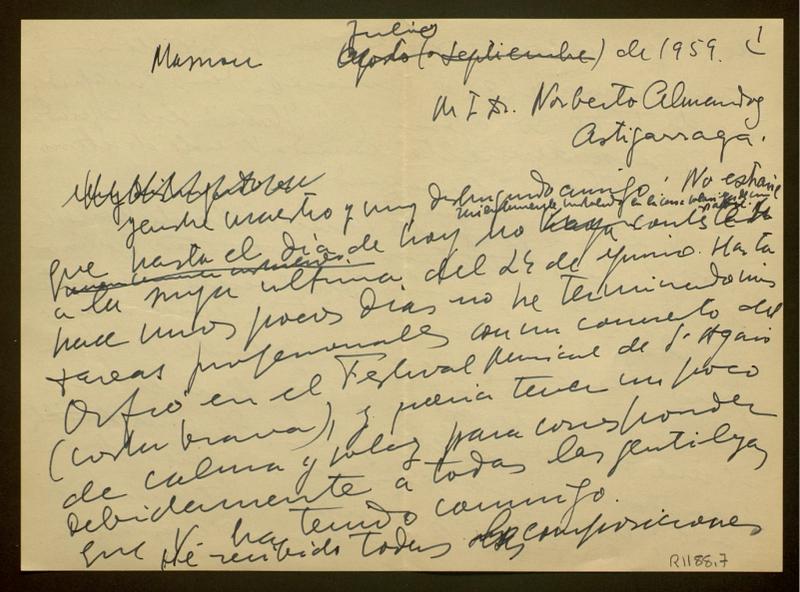 Masnou Julio ~~Agosto (o Septiembre)~~ de 1959. 1
M I Dr. Norberto Almandoz
Astigarraga.
maestro y muy distinguido amigo: No extrañe
que hasta el día de hoy no contesté
a la suya última del 24 de junio. Hasta
hace unos pocos días no he terminado mis
tareas profesionales con un concierto del
Orfeó en el Festival Musical de S'Agaró
(costa brava), y quería tener un poco
de calma y solaz para corresponder
debidamente a todas las gentilezas
que V. ha tenido conmigo.
He recibido todas composiciones
R1188,7